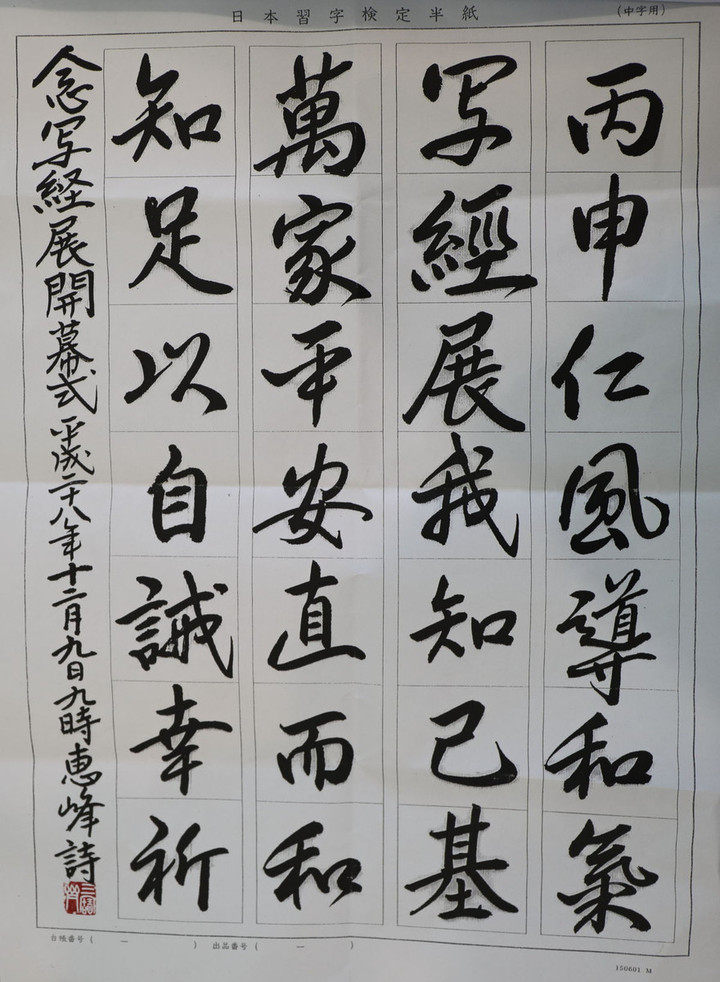 日本習字検定半紙
(中字用)
丙申仁風導和氣
写經展我知己基
萬家平安直而和
知足以自誡幸祈
念写経展開幕式 平成二十八年十二月九日九時恵峰詩
台帳番号 ( ー )
出品番号 ( ー )
150601 M